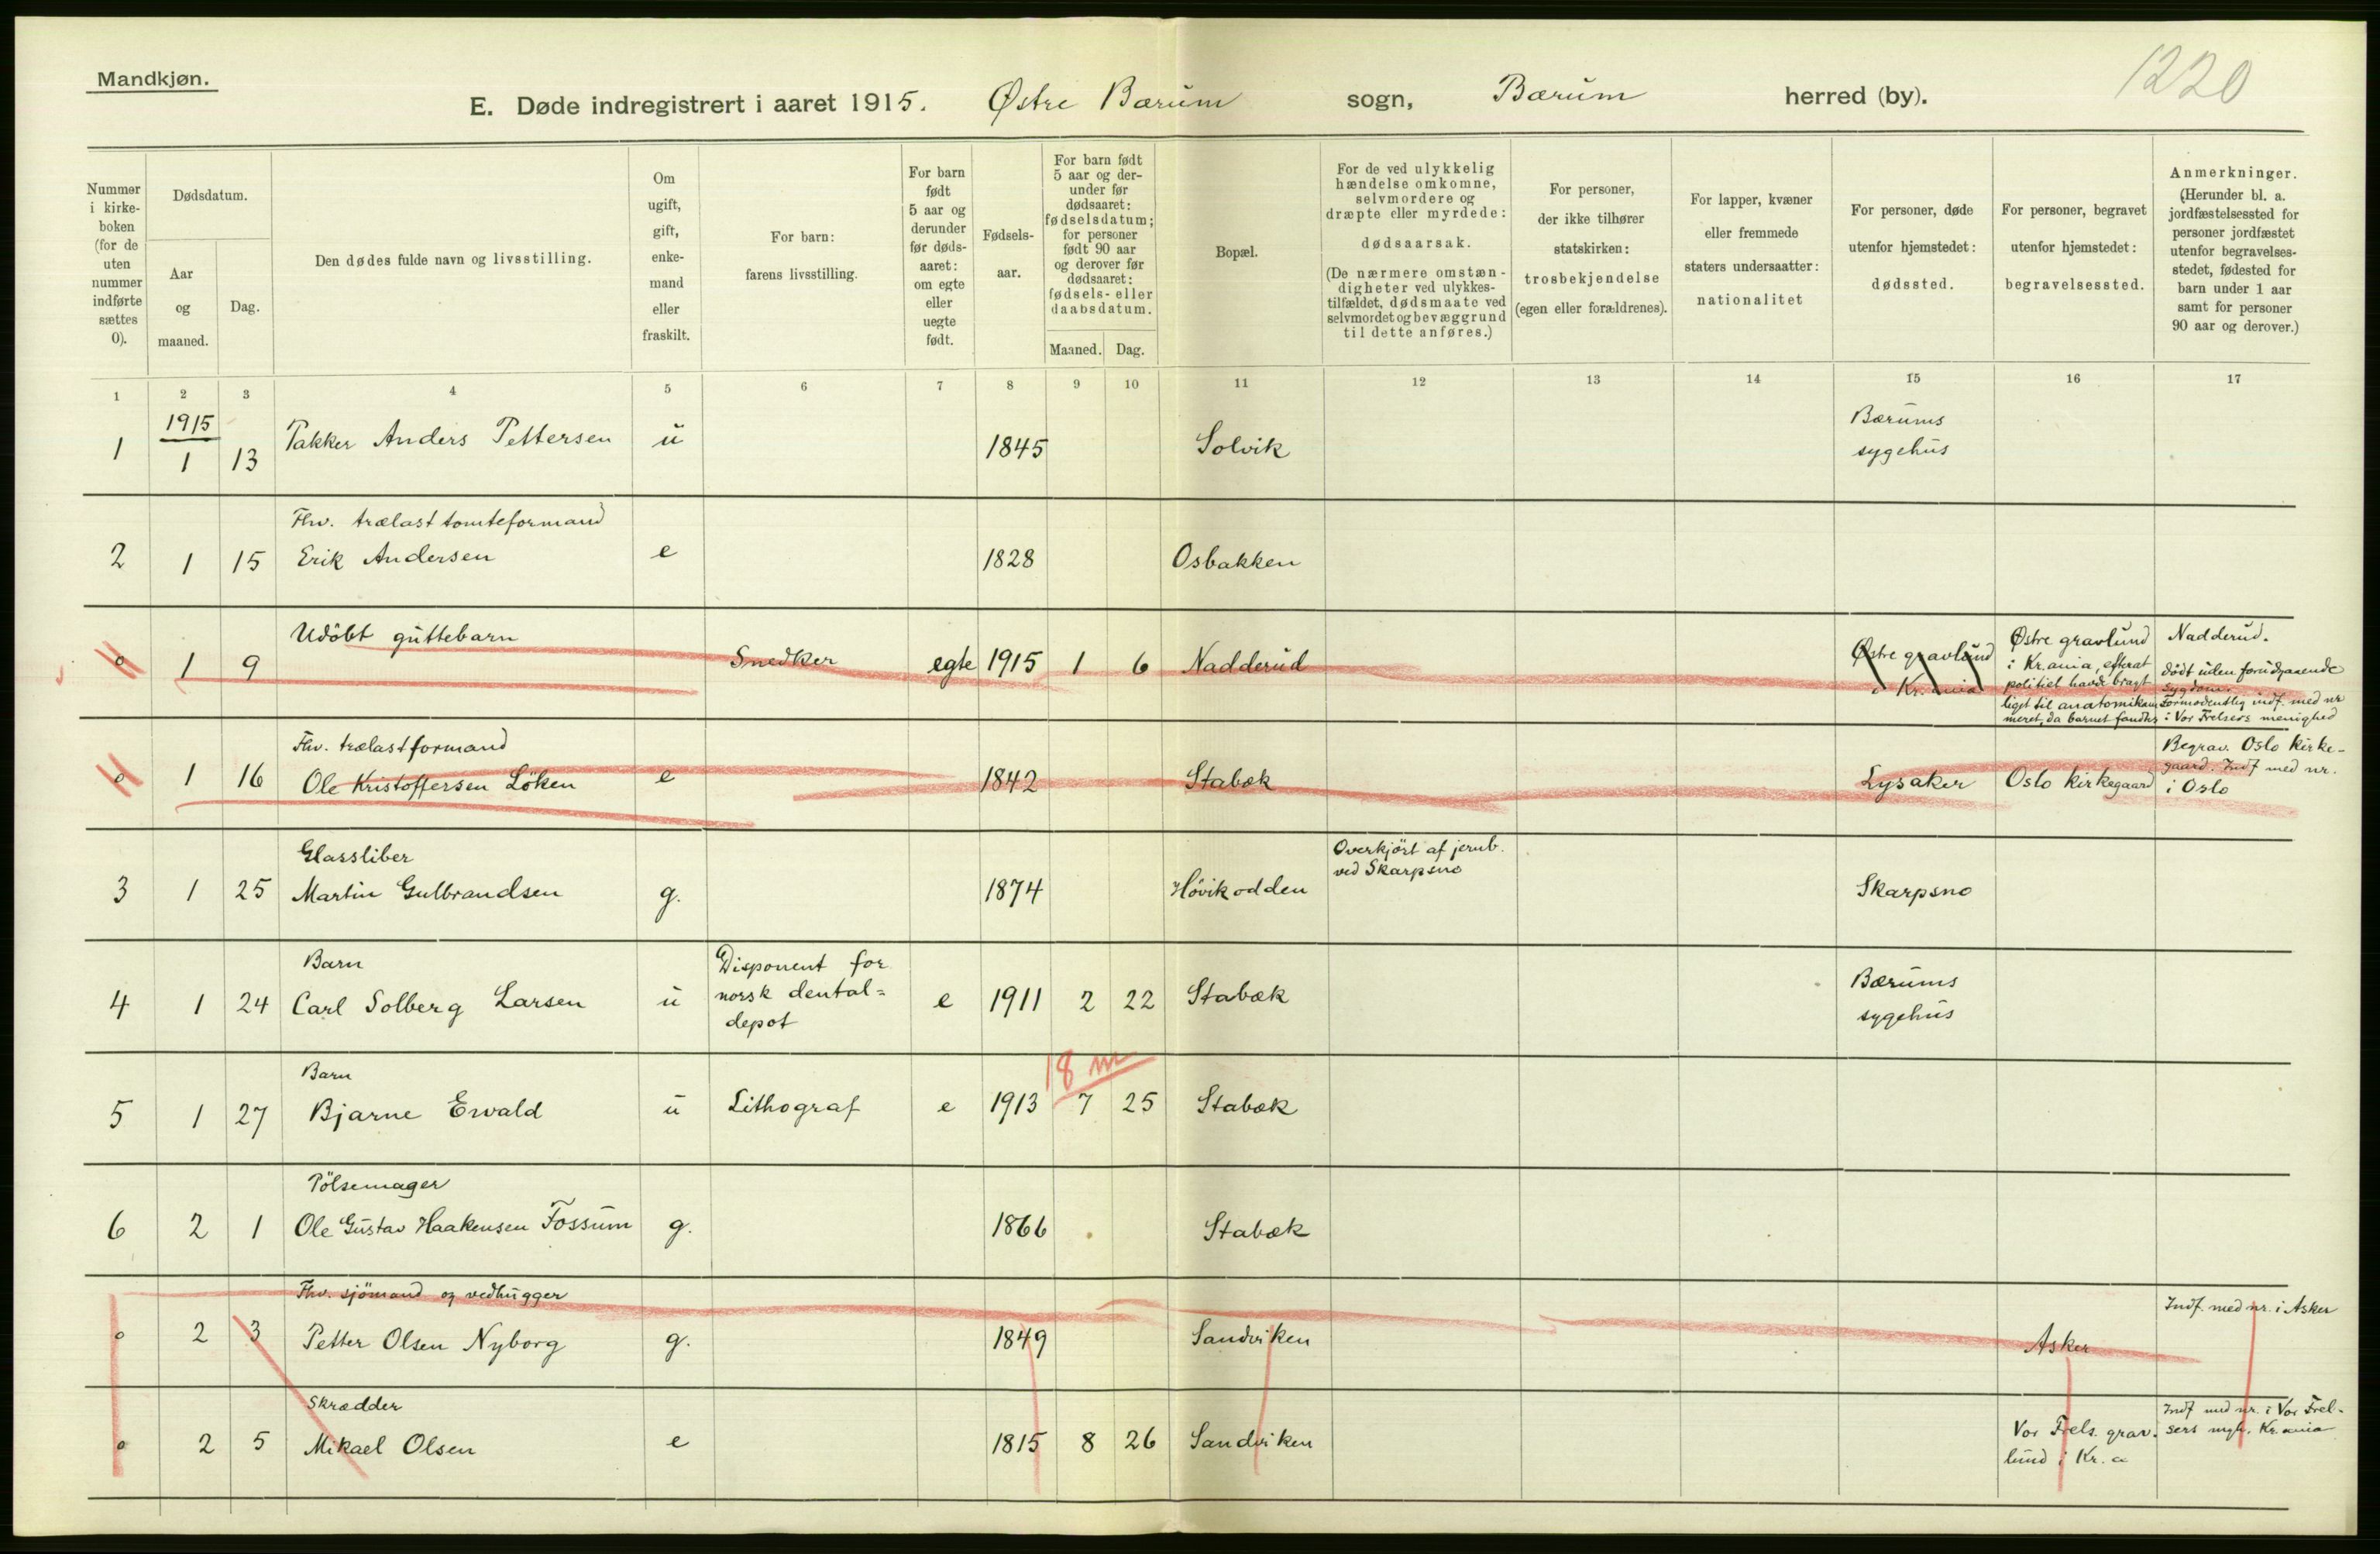 Mandkjøn.
1220
E. Døde indregistrert i aaret 1915. Østre Bærum sogn, Bærum herred (by).
Nummer i kirke-boken (for de uten nummer indførte sættes 0).
Dødsdatum.
Aar og maaned.
Dag.
Den dødes fulde navn og livsstilling.
Om ugift, gift, enke-mand eller fraskilt.
For barn: farens livsstilling.
For barn født 5 aar og derunder før døds-aaret: om egte eller uegte født.
Fødsels-aar.
For barn født 5 aar og der-under før dødsaaret: fødselsdatum; for personer født 90 aar og derover før dødsaaret: fødsels- eller daabsdatum.
Maaned. Dag.
Bopæl.
For de ved ulykkelig hændelse omkomne, selvmordere og dræpte eller myrdede: dødsaarsak. (De nærmere omstæn-digheter ved ulykkes-tilfældet, dødsmaate ved selvmordet og bevæggrund til dette anføres.)
For personer, der ikke tilhører statskirken: trosbekjendelse (egen eller forældrenes).
For lapper, kvæner eller fremmede staters undersaatter: nationalitet
For personer, døde utenfor hjemstedet: dødssted.
For personer, begravet utenfor hjemstedet: begravelsessted.
Anmerkninger. (Herunder bl. a. jordfæstelsessted for personer jordfæstet utenfor begravelses-stedet, fødested for barn under 1 aar samt for personer 90 aar og derover.)
1 2 3 4 5 6 7 8 9 10 11 12 13 14 15 16 17
1915
1 1 13 Pakker Anders Pettersen u 1845 Solvik Bærums sygehus
Fhv. trælasttomteformand
2 1 15 Erik Andersen e 1828 Osbakken
Udöbt guttebarn
0 1 9 Snedker egte 1915 1 6 Nadderud Østre gravlund i Kr.ania
Østre gravlund i Kr.ania, efterat politiet havde bragt liget til anatomikam-meret, da barnet fandtes
Nadderud. dödt uden forudgaaende sygdom. Formodentlig indf. med nr i Vor Frelsers menighed
Fhv. trælastformand
0 1 16 Ole Kristoffersen Löken e 1842 Stabæk Lysaker Oslo kirkegaard
Begrav. Oslo kirke-gaard. Indf med nr. i Oslo
Glassliber
3 1 25 Martin Gulbrandsen g. 1874 Hövikodden Overkjört af jernb. ved Skarpsno Skarpsno
Barn
4 1 24 Carl Solberg Larsen u Disponent for norsk dental=depot e 1911 2 22 Stabæk Bærums sygehus
18 m
Barn
5 1 27 Bjarne Ewald u Lithograf e 1913 7 25 Stabæk
Pölsemager
6 2 1 Ole Gustav Haakensen Fossum g. 1866 Stabæk
Fhv. sjömand og vedhugger
0 2 3 Petter Olsen Nyborg g. 1849 Sandviken Asker Indf. med nr. i Asker
Skrædder
0 2 5 Mikael Olsen e 1815 8 26 Sandviken Vor Frels. grav.lund i Kr.a
Indf med nr. i Vor Frel-sers mgh. Kr.ania